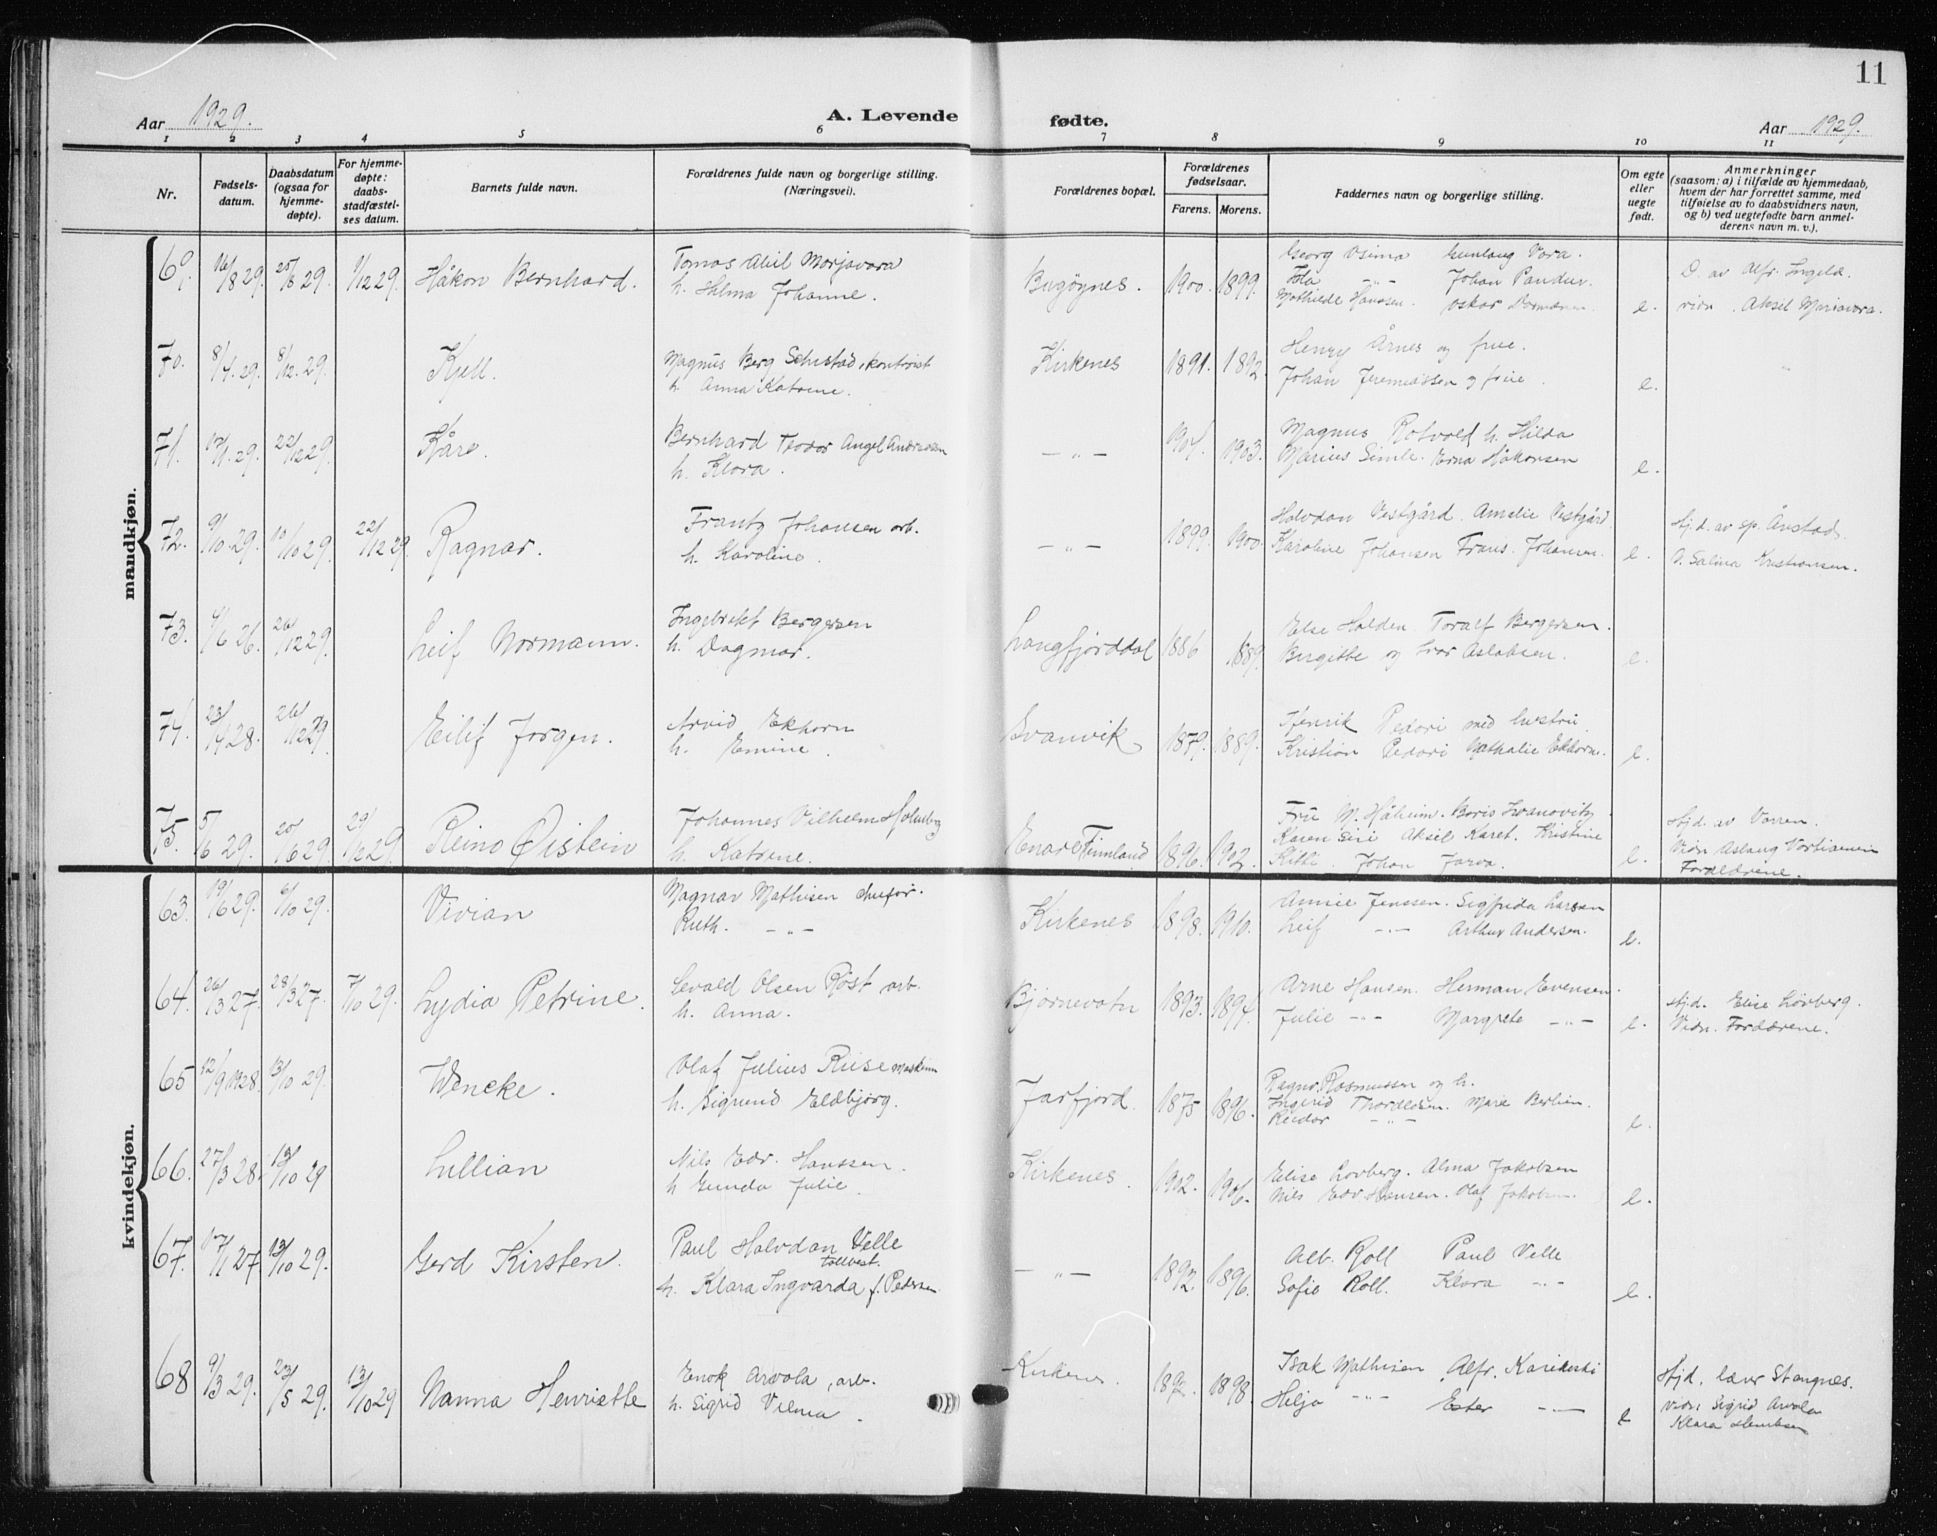 11
Aar 1929.
A. Levende fødte.
Aar 1929.
1 2 3 4 5 6 7 8 9 10 11
Nr.
Fødsels-datum.
Daabsdatum (ogsaa for hjemme-døpte).
For hjemme-døpte: daabs-stadfæstel-ses datum.
Barnets fulde navn.
Forældrenes fulde navn og borgerlige stilling. (Næringsvei).
Forældrenes bopæl.
Forældrenes fødselsaar.
Farens. Morens.
Faddernes navn og borgerlige stilling.
Om egte eller uegte født.
Anmerkninger
(saasom: a) i tilfælde av hjemmedaab,
hvem der har forrettet samme, med
tilføielse av to daabsvidners navn,
og b) ved uegtefødte barn anmel-
derens navn m. v.).
mandkjøn.
69. 16/8 29. 25/8 29. 1/12 29. Håkon Bernhard.
Tomas Abil Morjavara
h. Hilma Johanne.
Bugøynes. 1900. 1899.
Georg Usima Gunlaug Vara.
Ida -"- Johan Pandur.
Mathilde Hanssen. Oskar
e.
D. av Alfr. Ingeld.
vidn. Aksel Mariavara.
70. 8/4 29. 8/12 29. Kjell.
Magnus Berg Schistad, kontorist
h. Anna Katrine.
Kirkenes 1891. 1892.
Henry Årnes og frue.
Johan Jeremiassen og frue.
e.
71. 17/1 29. 22/12 29. Kåre.
Bernhard Teodor Angel Andreassen
h. Klara.
-"- 1904. 1903.
Magnus Rotvold h. Hilda
Marius Simle. Erna Håkonsen
e.
72. 9/10 29. 10/10 29 22/12 29. Ragnar.
Frantz Johansen arb.
h. Karoline.
-"- 1899. 1900.
Halvdan Vestgård. Amelie Vestgård
Karoline Johansen Frans. Johansen.
e.
Hj.d. av sp. Ånstad.
V. Salina Kristiansen.
73. 4/6 26. 26/12 29. Leif Normann.
Ingebrikt Bergersen
h. Dagmar.
Langfjorddal 1886 1889.
Else Holden. Toralf Bergersen.
Birgitte og Ivar Aslaksen.
e.
74. 23/4 28. 26/12 29. Eilif Jorgen.
Arvid Ekhorn
h. Emine.
Svanvik 1879. 1889.
Henrik Pedari med hustru
Kristian Pedari Nathalie Ekhorn.
e.
75. 5/6 29. 20/6 29 29/12 29. Reino Øistein
Johannes Vilhelm Holmberg
h. Katrine.
Enare Finnland 1896. 1902.
Fru M. Håheim. Boris Ivanovitz
Karen Siri Aksel Karet. Kristine
Kitti. Johan Jarva.
e.
Hjd. av Varren.
Vidn. Aslaug
Foreldrene.
kvindekjøn.
63. 19/6 29. 6/10 29. Vivian
Magnar Mathisen chuför.
Ruth. -"-
Kirkenes 1898. 1910.
Annie Jenssen. Sigfrida Larsen
Leif -"- Arthur Andersen.
e.
64. 26/3 27. 28/3 27. 7/10 29. Lydia Petrine.
Sevald Olsen Røst arb.
h. Anna.
Bjørnevatn 1893. 1894.
Arne Hansen. Herman Evensen.
Julie -"- Margrete -"-
e.
Hjd. Elise Lövberg.
Vidn. Foreldrene.
65 12/9 1928. 13/10 29. Wencke.
Olaf Julius Riise maskinm
h. Sigrund Eldbjörg.
Jarfjord. 1875 1896.
Ragnv. Rasmussen og h.
Ingerid Thoralvsen. Marie Berlin.
Reidar -"-
e.
66. 27/3 28. 13/10 29 Lillian
Nils Edv. Hanssen.
h Gunda Julie.
Kirkenes. 1902. 1906.
Elise Lovberg. Alma Jakobsen
Nils Edv. Hansen. Olaf Jakobsen.
e.
67. 17/1 27 13/10 29. Gerd Kirsten.
Paul Halvdan Velle
tollvest.
h. Klara Ingvarda f. Pedersen.
-"- 1892. 1896.
Alb. Roll Paul Velle
Sofie Roll. Klara -"-
e.
68 9/3 29. 23/5 29. 13/10 29 Nanna Henriette
Enok Arvola, arb.
h. Sigrid Vilma.
Kirkenes. 1892. 1898.
Isak Mathisen Alfr. Karikoski
Hilja -"- Ester -"-
e
Hjd. lærer Stangnes.
vidn: Sigrid Arvola
Klara Henriksen